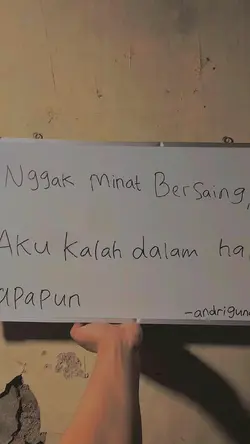 Nggak minat Bersaing,
Aku kalah dalam ha
apapun
-andrigun